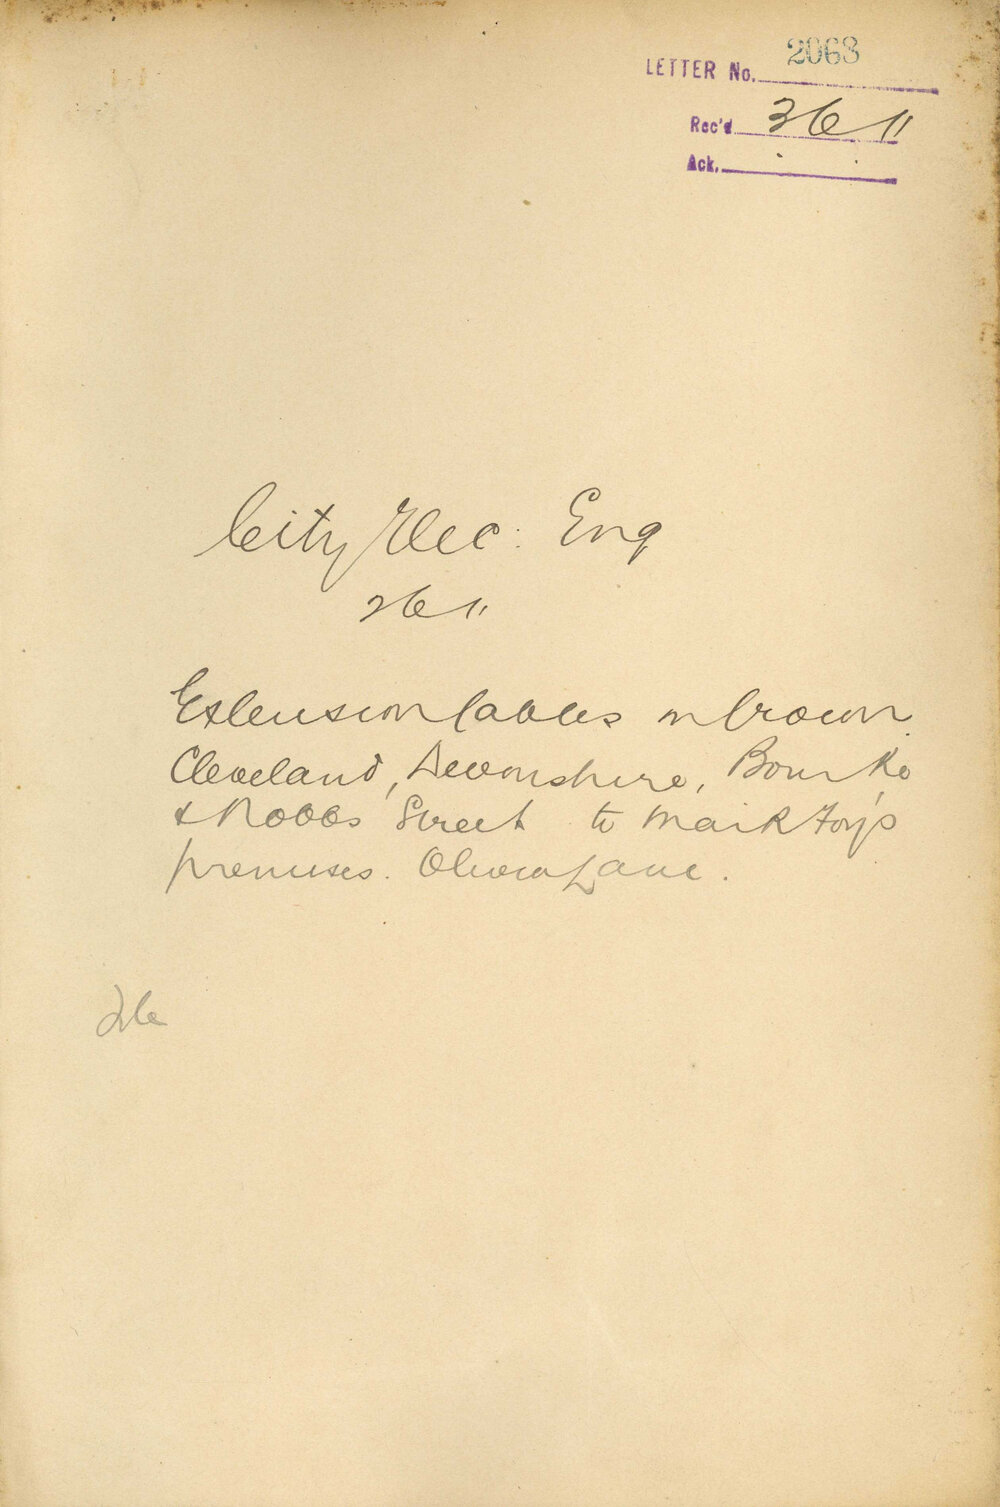 LETTER No. 2063
Rec'd 3 6 11
Ack.
City Elec: Eng
2 6 11
Extension Cables in Crown
Cleveland, Devonshire, Bourke
& Nobbs Street to Mark Foy's
premises. Oliver Lane.